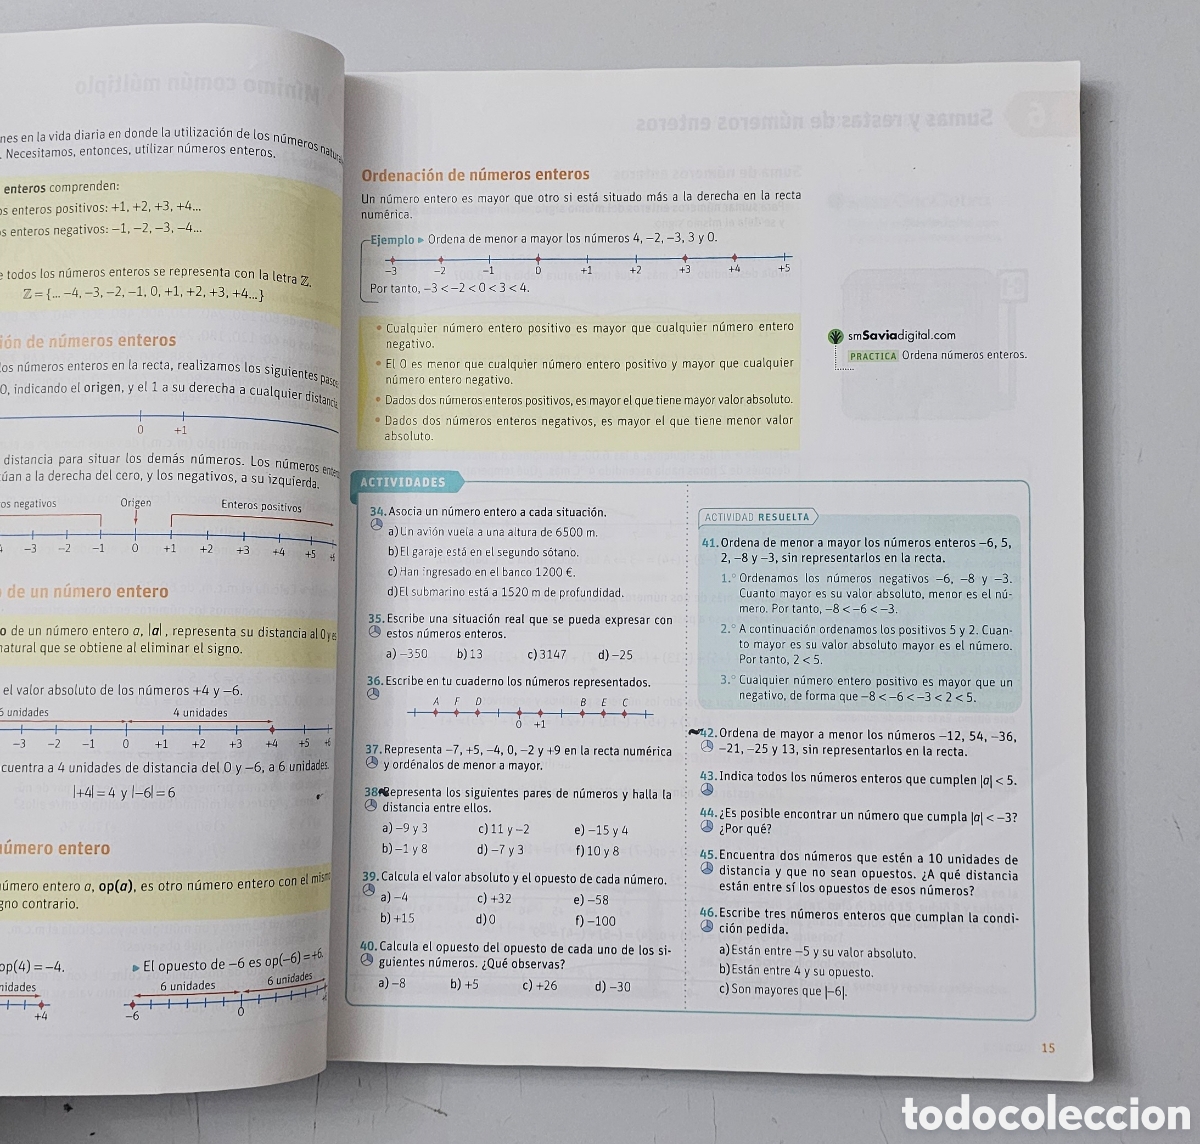 nes en la vida diaria en donde la utilización de los números
Necesitamos, entonces, utilizar números enteros.
enteros comprenden:
os enteros positivos: +1, +2, +3, +4...
os enteros negativos: −1, −2, −3, −4...
e todos los números enteros se representa con la letra ℤ.
ℤ = {... −4, −3, −2, −1, 0, +1, +2, +3, +4...}
ión de números enteros
los números enteros en la recta, realizamos los siguientes pasos
0, indicando el origen, y el 1 a su derecha a cualquier distancia
0 +1
distancia para situar los demás números. Los números
túan a la derecha del cero, y los negativos, a su izquierda.
os negativos Origen Enteros positivos
−3 −2 −1 0 +1 +2 +3 +4 +5
de un número entero
o de un número entero a, |a|, representa su distancia al 0 y es
natural que se obtiene al eliminar el signo.
el valor absoluto de los números +4 y −6.
6 unidades 4 unidades
−3 −2 −1 0 +1 +2 +3 +4 +5 +6
cuentra a 4 unidades de distancia del 0 y −6, a 6 unidades.
|+4| = 4 y |−6| = 6
número entero
número entero a, op(a), es otro número entero con el mismo
gno contrario.
op(4) = −4.
nidades
+4
▸ El opuesto de −6 es op(−6) = +6.
6 unidades 6 unidades
−6 0
Mínimo común múltiplo
6 Sumas y restas de números enteros
Ordenación de números enteros
Un número entero es mayor que otro si está situado más a la derecha en la recta
numérica.
Ejemplo ▸ Ordena de menor a mayor los números 4, −2, −3, 3 y 0.
−3 −2 −1 0 +1 +2 +3 +4 +5
Por tanto, −3 < −2 < 0 < 3 < 4.
• Cualquier número entero positivo es mayor que cualquier número entero
negativo.
• El 0 es menor que cualquier número entero positivo y mayor que cualquier
número entero negativo.
• Dados dos números enteros positivos, es mayor el que tiene mayor valor absoluto.
• Dados dos números enteros negativos, es mayor el que tiene menor valor
absoluto.
smSaviadigital.com
PRACTICA Ordena números enteros.
ACTIVIDADES
34. Asocia un número entero a cada situación.
a) Un avión vuela a una altura de 6500 m.
b) El garaje está en el segundo sótano.
c) Han ingresado en el banco 1200 €.
d) El submarino está a 1520 m de profundidad.
35. Escribe una situación real que se pueda expresar con
estos números enteros.
a) −350 b) 13 c) 3147 d) −25
36. Escribe en tu cuaderno los números representados.
A F D B E C
0 +1
37. Representa −7, +5, −4, 0, −2 y +9 en la recta numérica
y ordénalos de menor a mayor.
38. Representa los siguientes pares de números y halla la
distancia entre ellos.
a) −9 y 3 c) 11 y −2 e) −15 y 4
b) −1 y 8 d) −7 y 3 f) 10 y 8
39. Calcula el valor absoluto y el opuesto de cada número.
a) −4 c) +32 e) −58
b) +15 d) 0 f) −100
40. Calcula el opuesto del opuesto de cada uno de los si-
guientes números. ¿Qué observas?
a) −8 b) +5 c) +26 d) −30
ACTIVIDAD RESUELTA
41. Ordena de menor a mayor los números enteros −6, 5,
2, −8 y −3, sin representarlos en la recta.
1.º Ordenamos los números negativos −6, −8 y −3.
Cuanto mayor es su valor absoluto, menor es el nú-
mero. Por tanto, −8 < −6 < −3.
2.º A continuación ordenamos los positivos 5 y 2. Cuan-
to mayor es su valor absoluto mayor es el número.
Por tanto, 2 < 5.
3.º Cualquier número entero positivo es mayor que un
negativo, de forma que −8 < −6 < −3 < 2 < 5.
42. Ordena de mayor a menor los números −12, 54, −36,
−21, −25 y 13, sin representarlos en la recta.
43. Indica todos los números enteros que cumplen |a| < 5.
44. ¿Es posible encontrar un número que cumpla |a| < −3?
¿Por qué?
45. Encuentra dos números que estén a 10 unidades de
distancia y que no sean opuestos. ¿A qué distancia
están entre sí los opuestos de esos números?
46. Escribe tres números enteros que cumplan la condi-
ción pedida.
a) Están entre −5 y su valor absoluto.
b) Están entre 4 y su opuesto.
c) Son mayores que |−6|.
15
todocoleccion